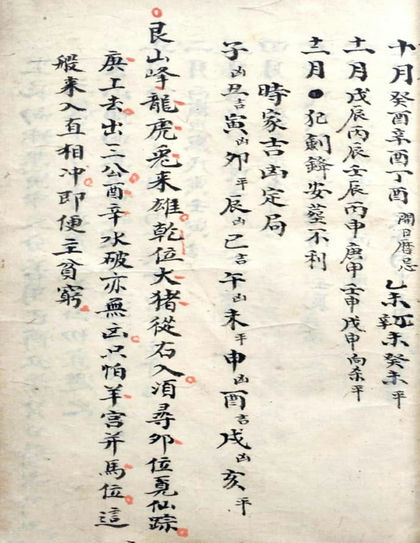 十月癸酉辛酉丁酉開日曆忌乙未丁未辛未癸未平
十一月戊辰丙辰壬辰丙申庚申壬申戊申向系平
十二月犯劍鋒安塟不利
時家吉凶定局
子凶丑吉寅凶卯平辰凶巳吉午凶未平申凶酉吉戌凶亥平
艮山峰龍虎兎来雄乾位大猪從右入湏尋卯位覔仙踪
庚工去出三公酉辛水破亦無凶只怕羊宮并馬位這
般来入直相冲即便主貧窮